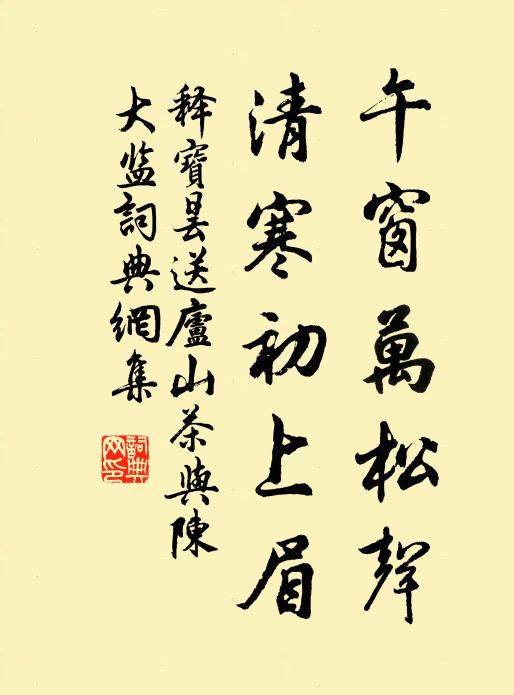 午窗萬松聲
清寒初上眉
释寶曇送廬山茶與陳
大监詞典網集
詞典
网印